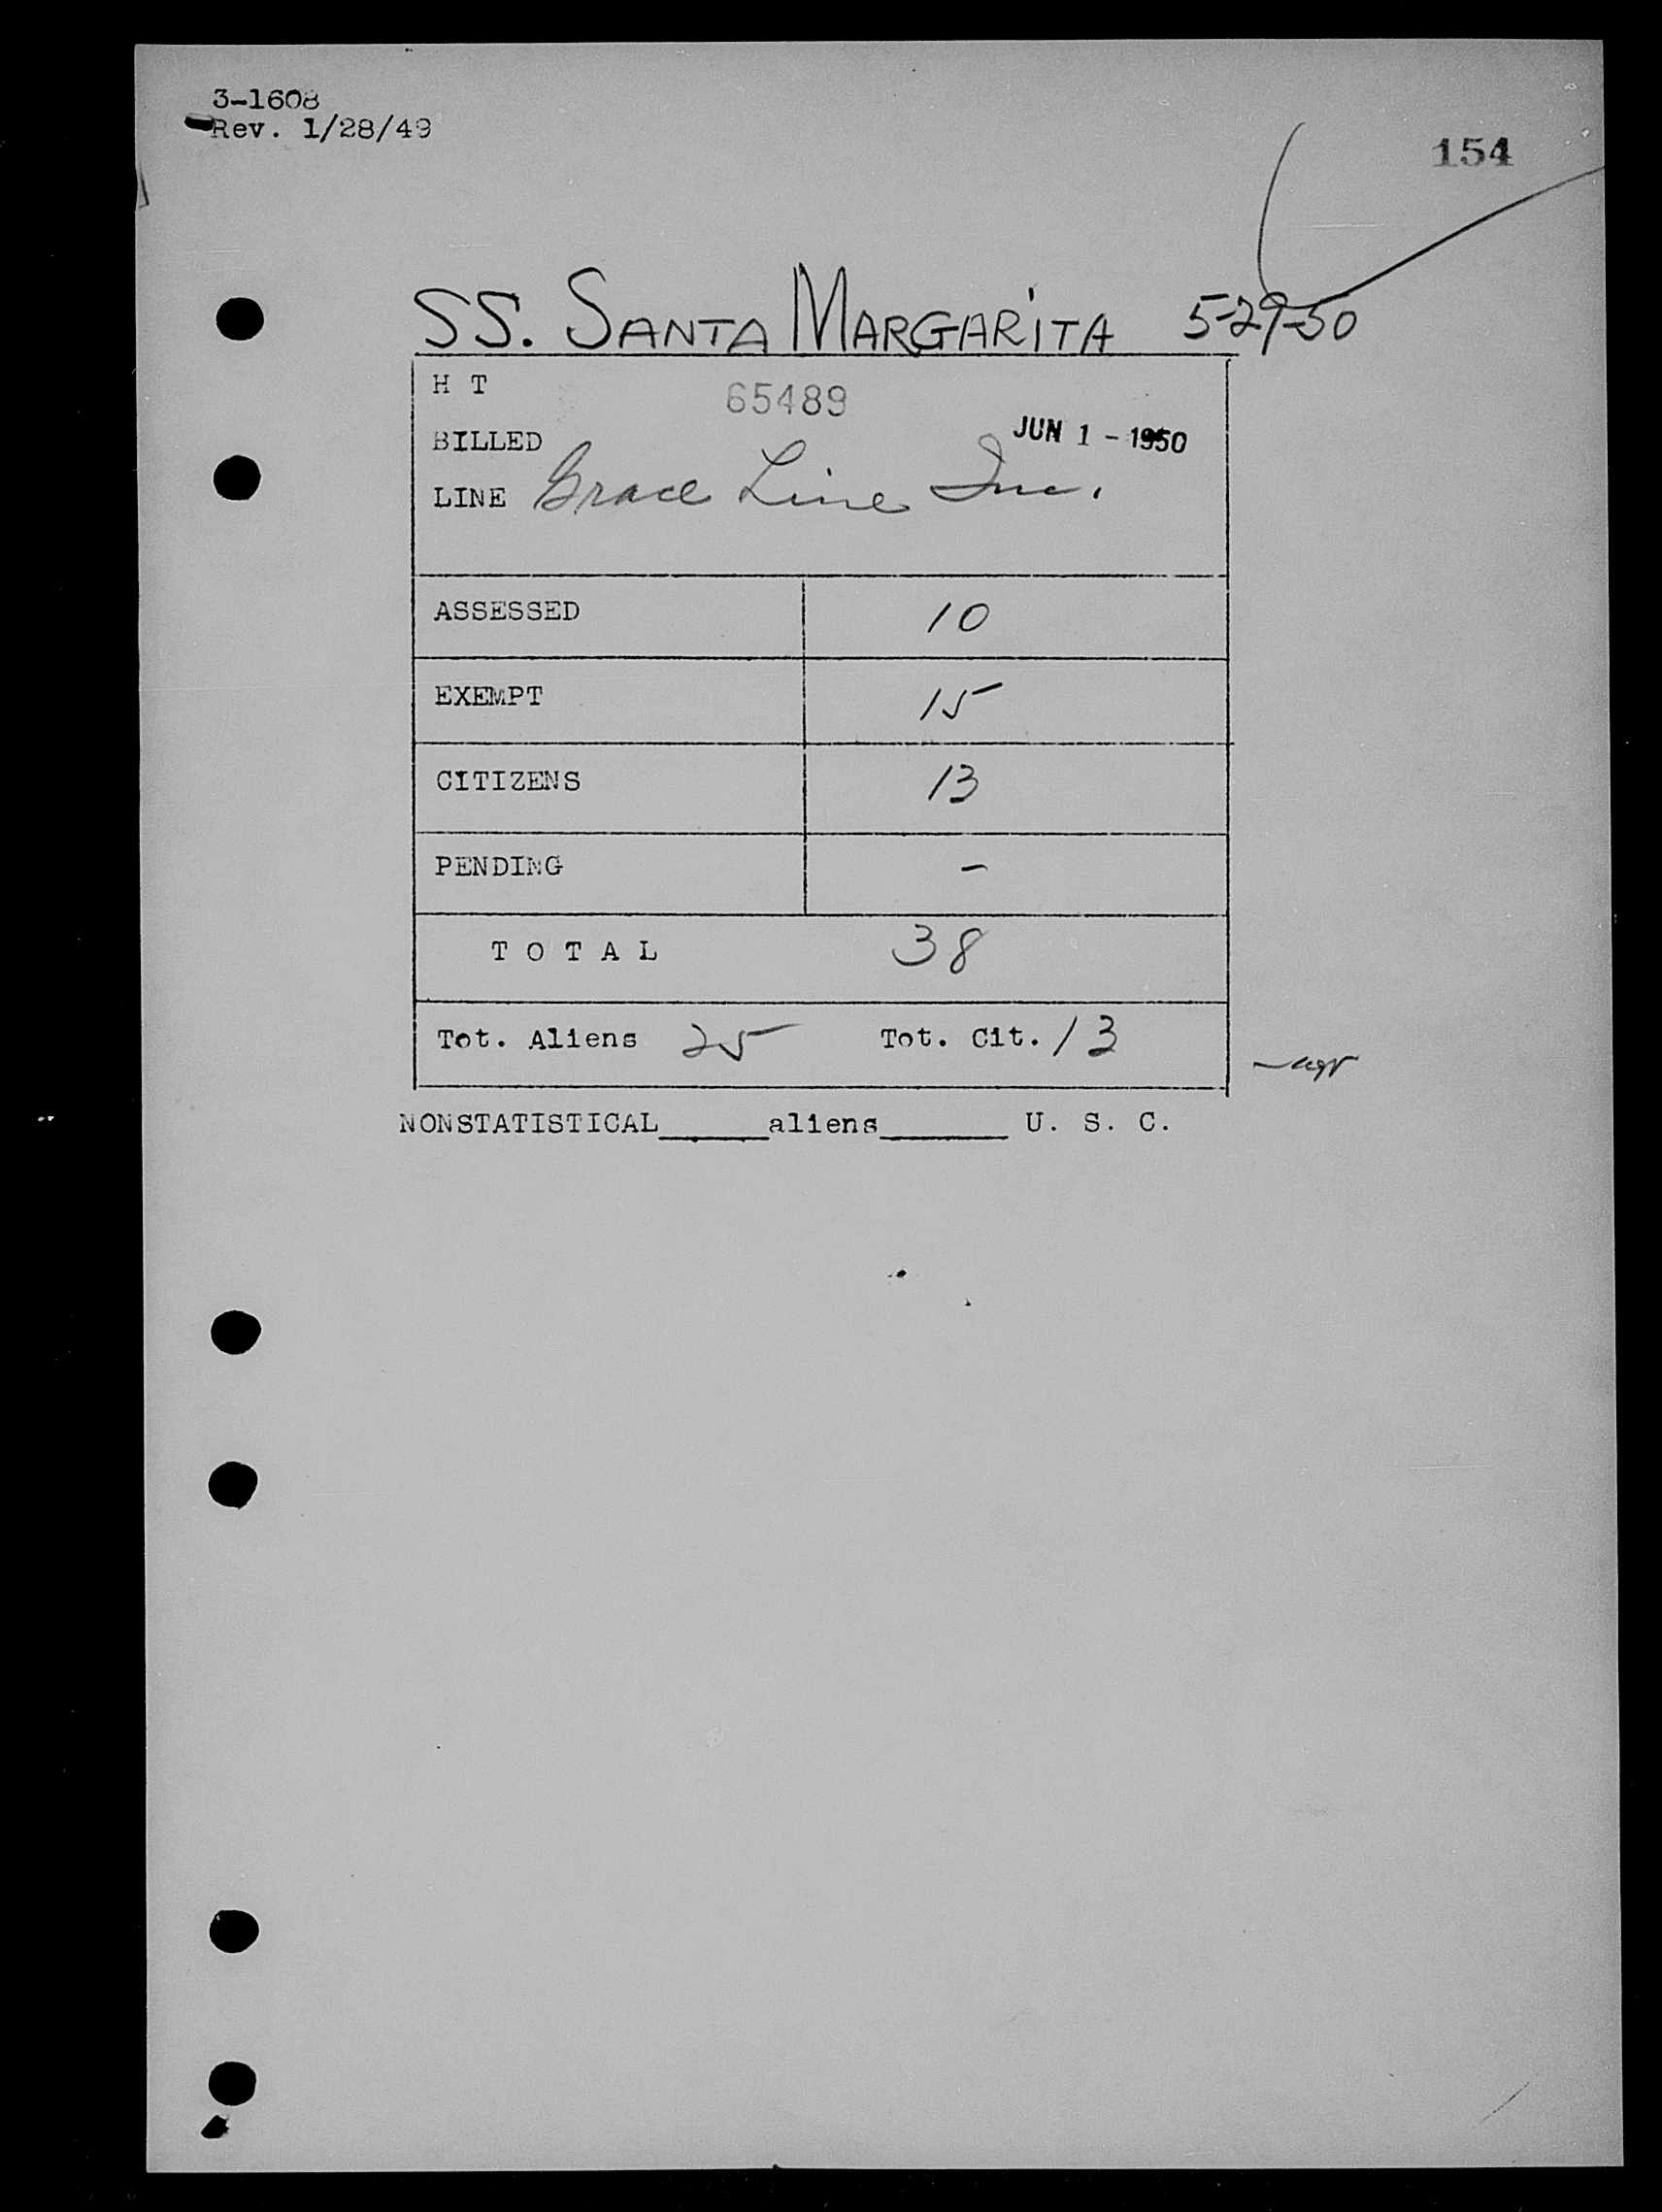 3-1608
Rev. 1/28/49
154
SS. SANTA MARGARITA 5-29-50
H T 65489
BILLED JUN 1 - 1950
LINE Grace Line Inc.
ASSESSED 10
EXEMPT 15
CITIZENS 13
PENDING -
T O T A L 38
Tot. Aliens 25 Tot. Cit. 13
NONSTATISTICAL______aliens_______ U. S. C.